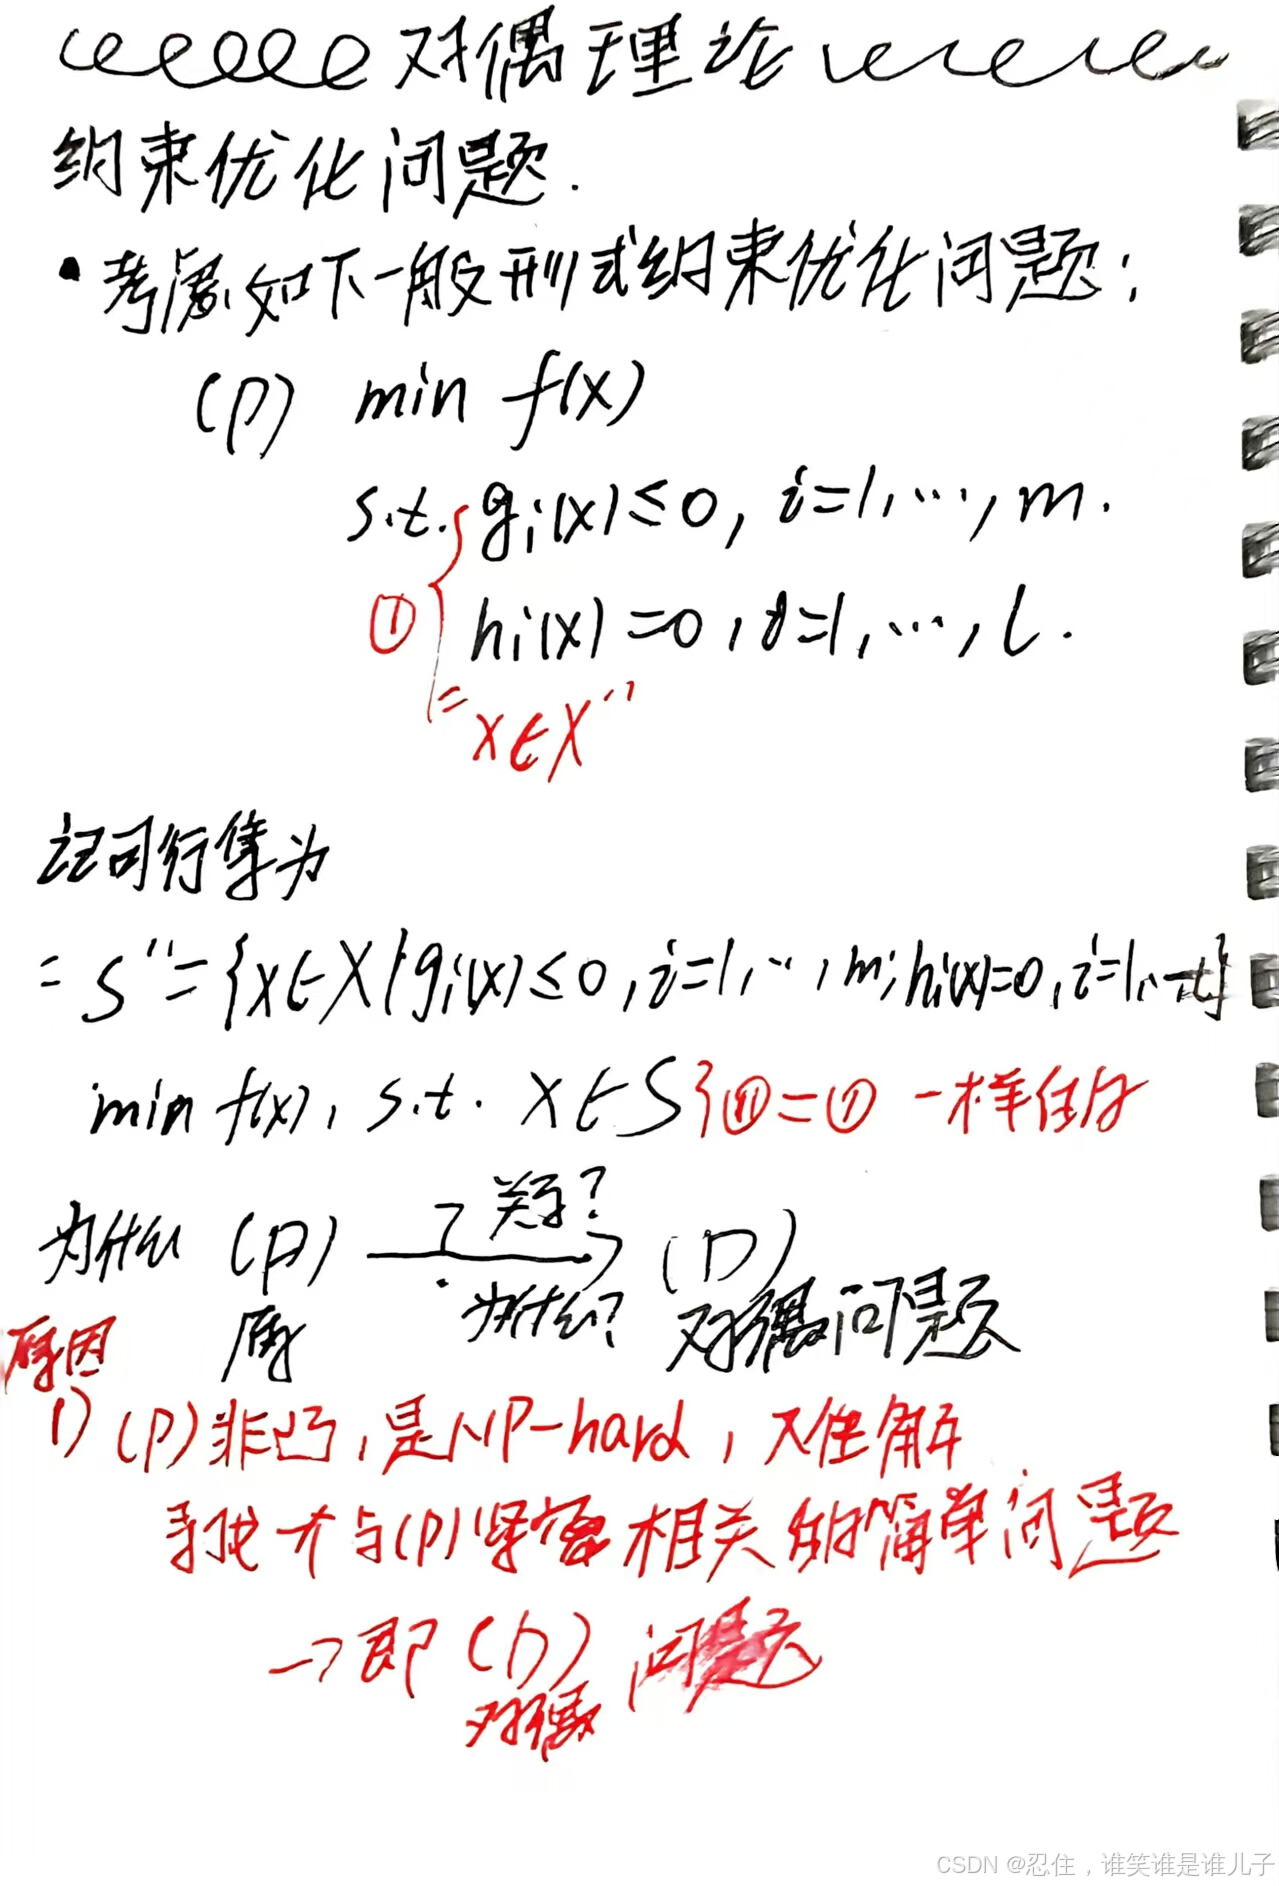 对偶理论
约束优化问题.
• 考虑如下一般形式约束优化问题:
(P) min f(x)
s.t. gi(x)≤0, i=1,…,m.
① hi(x)=0, i=1,…,l.
x∈X
记可行集为
S = {x∈X|gi(x)≤0, i=1,…,m; hi(x)=0, i=1,…,l}
min f(x), s.t. x∈S ⑪=① 一样
为什么 (P) → 关系? (D)
原 为什么? 对偶问题
原因
1) (P)非凸, 是NP-hard, 难解
寻找一个与(P)紧密相关的简单问题
→ 即 (D) 问题
对偶
CSDN @忍住,谁笑谁是谁儿子